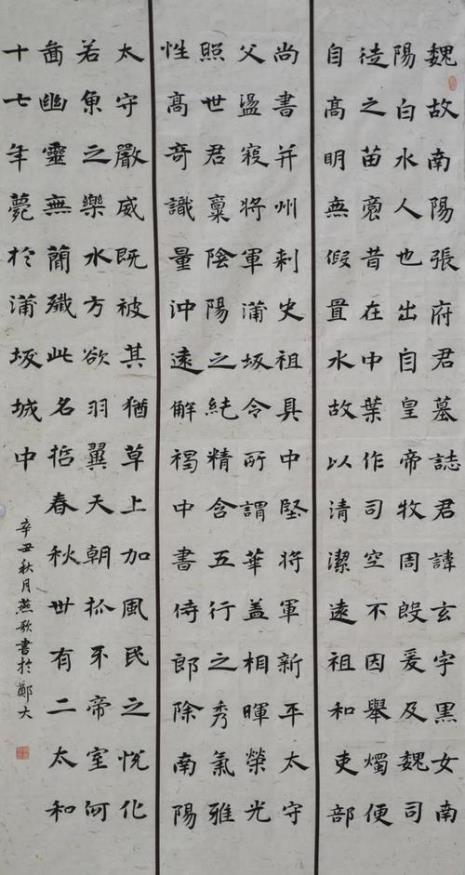 魏故南陽張府君墓誌君諱玄字黑女南
陽白水人也出自皇帝牧周殷爰及魏司
徒之苗裔昔在中葉作司空不因舉燭便
自高明無假置水故以清潔遠祖和吏部
尚書并州刾史祖具中堅將軍新平太守
父盪寇將軍蒲坂令所謂華蓋相暉榮光
照世君稟陰陽之純精含五行之秀氣雅
性高奇識量沖遠解褐中書侍郎除南陽
太守嚴威既被其猶草上加風民之悅化
若魚之樂水方欲羽翼天朝抓牙帝室何
啚幽靈無簡殲此名哲春秋丗有二太和
十七年薨於蒲坂城中
辛丑秋月燕歌書於鄭大